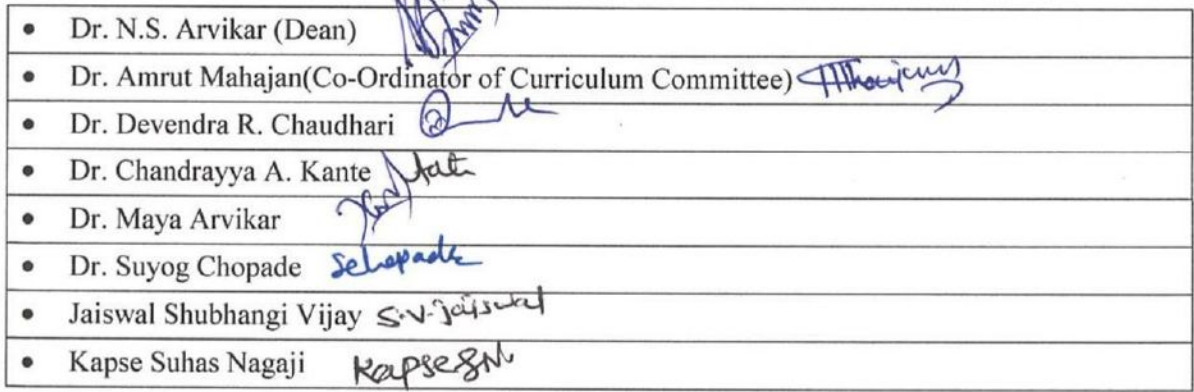 • Dr. N.S. Arvikar (Dean)
• Dr. Amrut Mahajan(Co-Ordinator of Curriculum Committee)
• Dr. Devendra R. Chaudhari
• Dr. Chandrayya A. Kante
• Dr. Maya Arvikar
• Dr. Suyog Chopade Schopade
• Jaiswal Shubhangi Vijay S.V. jaiswal
• Kapse Suhas Nagaji Kapse SN